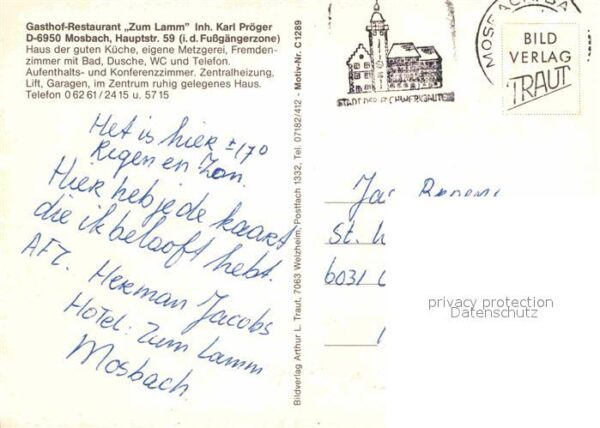 Gasthof-Restaurant „Zum Lamm” Inh. Karl Pröger
D-6950 Mosbach, Hauptstr. 59 (i. d. Fußgängerzone)
Haus der guten Küche, eigene Metzgerei, Fremden-
zimmer mit Bad, Dusche, WC und Telefon.
Aufenthalts- und Konferenzzimmer. Zentralheizung,
Lift, Garagen, im Zentrum ruhig gelegenes Haus.
Telefon 0 62 61 / 24 15 u. 57 15
Het is hier ± 17°
Regen en Zon.
Hier heb je de kaart
die ik belooft hebt.
AFZ. Herman Jacobs
Hotel: Zum Lamm
Mosbach.
Bildverlag Arthur L. Traut, 7063 Welzheim, Postfach 1332, Tel. 07182/412 - Motiv-Nr. C1289
STADT DER FACHWERKBAUTEN
BILD
VERLAG
TRAUT
St.
6031
privacy protection
Datenschutz